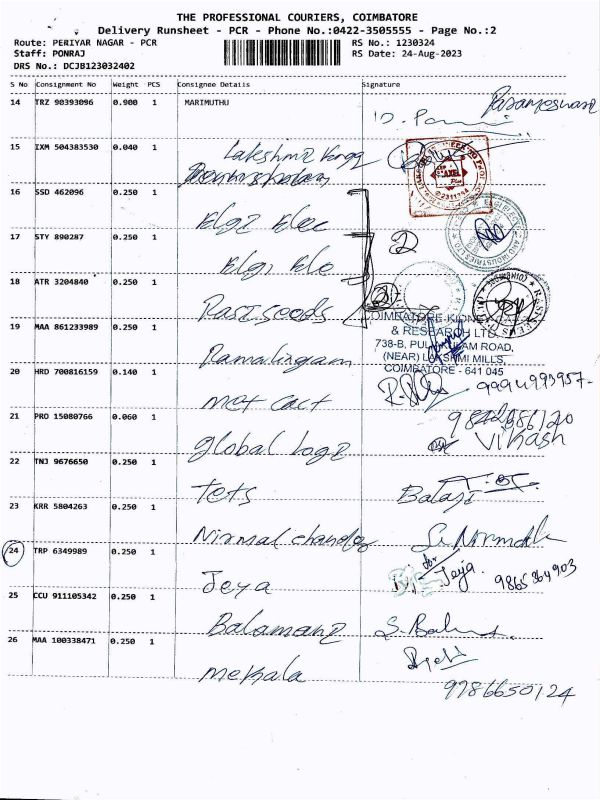 THE PROFESSIONAL COURIERS, COIMBATORE
Delivery Runsheet - PCR - Phone No.:0422-3505555 - Page No.:2
Route: PERIYAR NAGAR - PCR
Staff: PONRAJ
DRS No.: DCJB123032402
RS No.: 1230324
RS Date: 24-Aug-2023
S No Consignment No Weight PCS Consignee Details Signature
14 TRZ 90393096 0.900 1 MARIMUTHU
Parameswari
15 IXM 504383530 0.040 1
Lakshmi
16 SSD 462096 0.250 1
Elgi Elec
17 STY 890287 0.250 1
Elgi Ele
2
18 ATR 3204840 0.250 1
Rasi seeds
COIMBATORE KIDNEY
& RESEARCH LTD.
738-B, PULIAKULAM ROAD,
(NEAR) LAKSHMI MILLS,
COIMBATORE - 641 045
19 MAA 861233989 0.250 1
Ramalingam
20 HRD 700816159 0.140 1
9994993957-
met cact
21 PRO 15080766 0.060 1
9842686120
Global Logi
Vikash
22 TNJ 9676650 0.250 1
Tets
Balaji
23 KRR 5804263 0.250 1
Nirmal chander
24 TRP 6349989 0.250 1
for
Jeya
Jeya.
9865364903
25 CCU 911105342 0.250 1
Balamani
S. Balu
26 MAA 100338471 0.250 1
mekala
9786650124